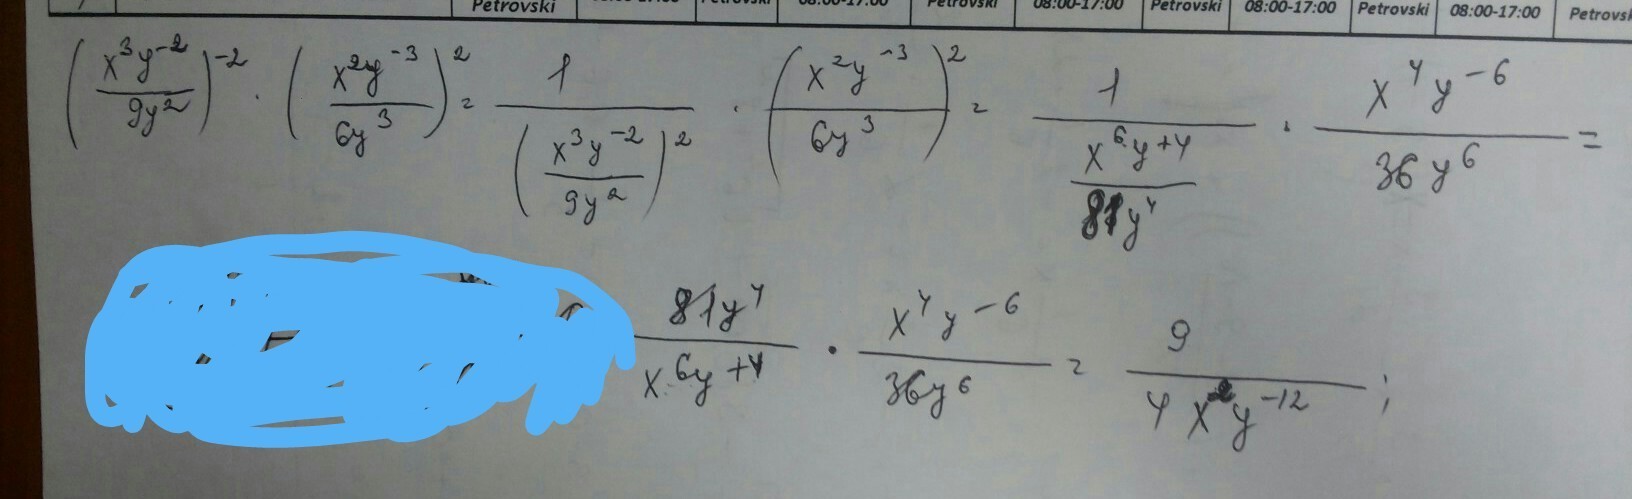 Petrovski 08:00-17:00 Petrovski 08:00-17:00 Petrovski 08:00-17:00 Petrovski 08:00-17:00 Petrovski 08:00-17:00
(x³y⁻²/9y²)⁻² · (x²y⁻³/6y³)² = 1/(x³y⁻²/9y²)² · (x²y⁻³/6y³)² = 1/(x⁶y⁺⁴/81y⁴) · x⁴y⁻⁶/36y⁶ =
81y⁴/x⁶y⁺⁴ · x⁴y⁻⁶/36y⁶ = 9/4x²y⁻¹² ;